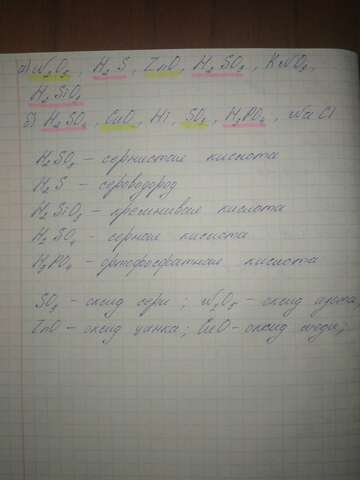 а) N₂O₅, H₂S, ZnO, H₂SO₃, KNO₃,
H₂SiO₃
б) H₂SO₄, CuO, HI, SO₃, H₃PO₄, NaCl
H₂SO₃ – сернистая кислота
H₂S – сероводород
H₂SiO₃ – кремниевая кислота
H₂SO₄ – серная кислота
H₃PO₄ – ортофосфатная кислота
SO₃ – оксид серы; N₂O₅ – оксид азота,
ZnO – оксид цинка; CuO – оксид меди;